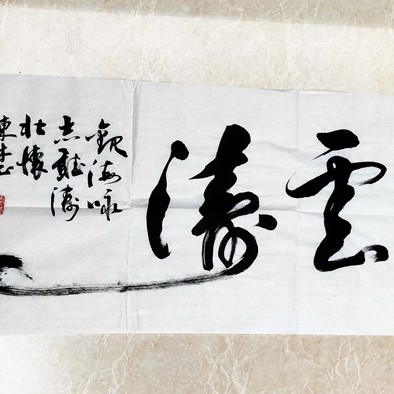 雲濤
觀海咏
志聽濤
壯懷
東